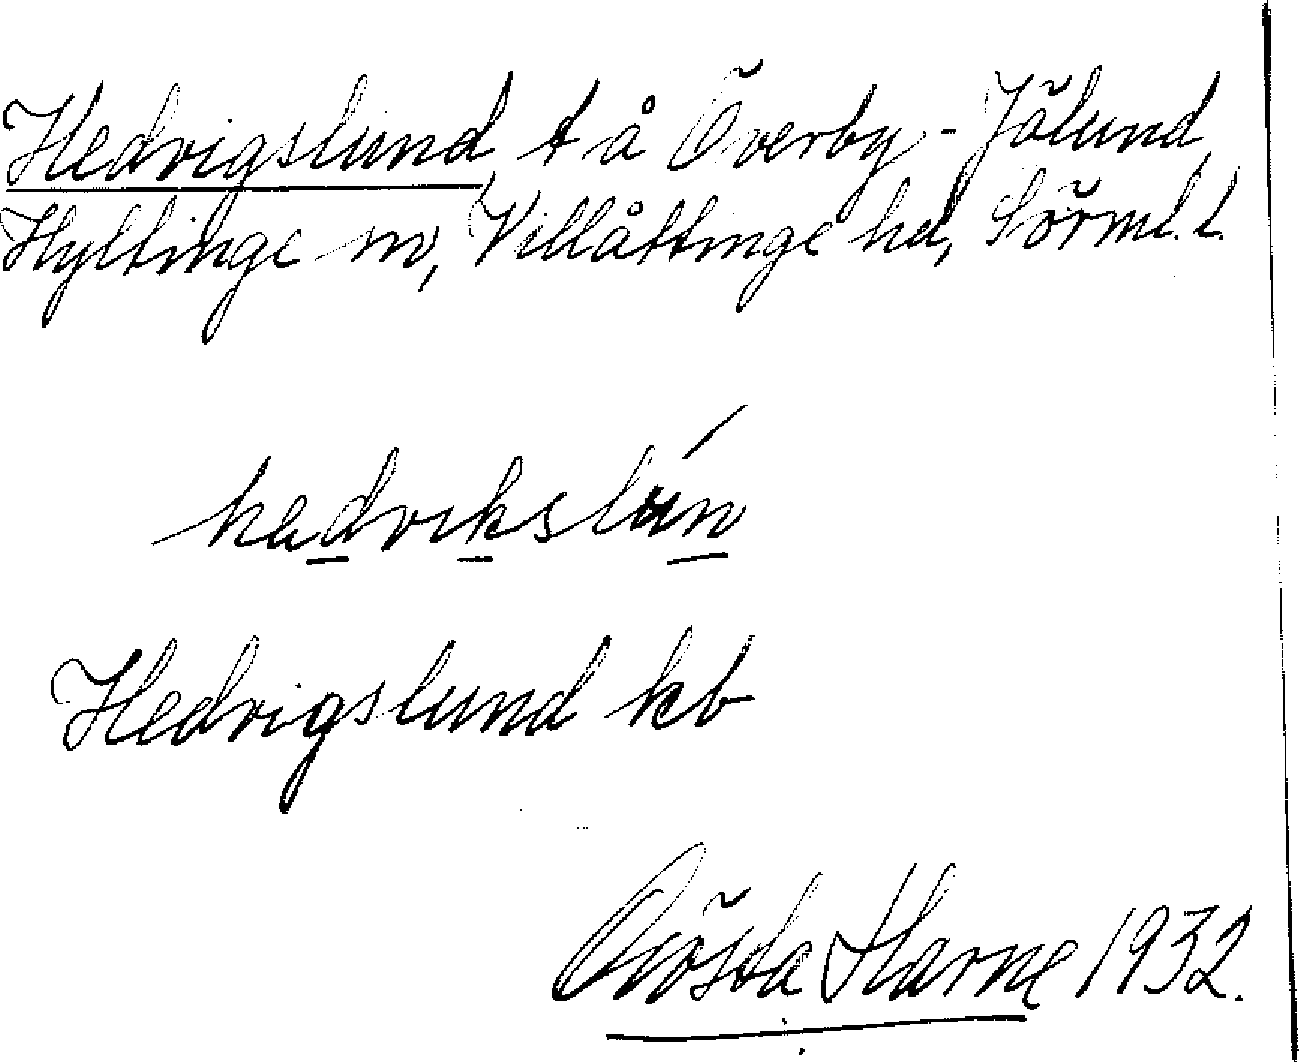 Hedvigslund, t å Överby-Jölund,
Hyltinge sn, Villåttinge hd, Sörml. l.
hedvikslún
Hedvigslund kb
Gösta Harne 1932.